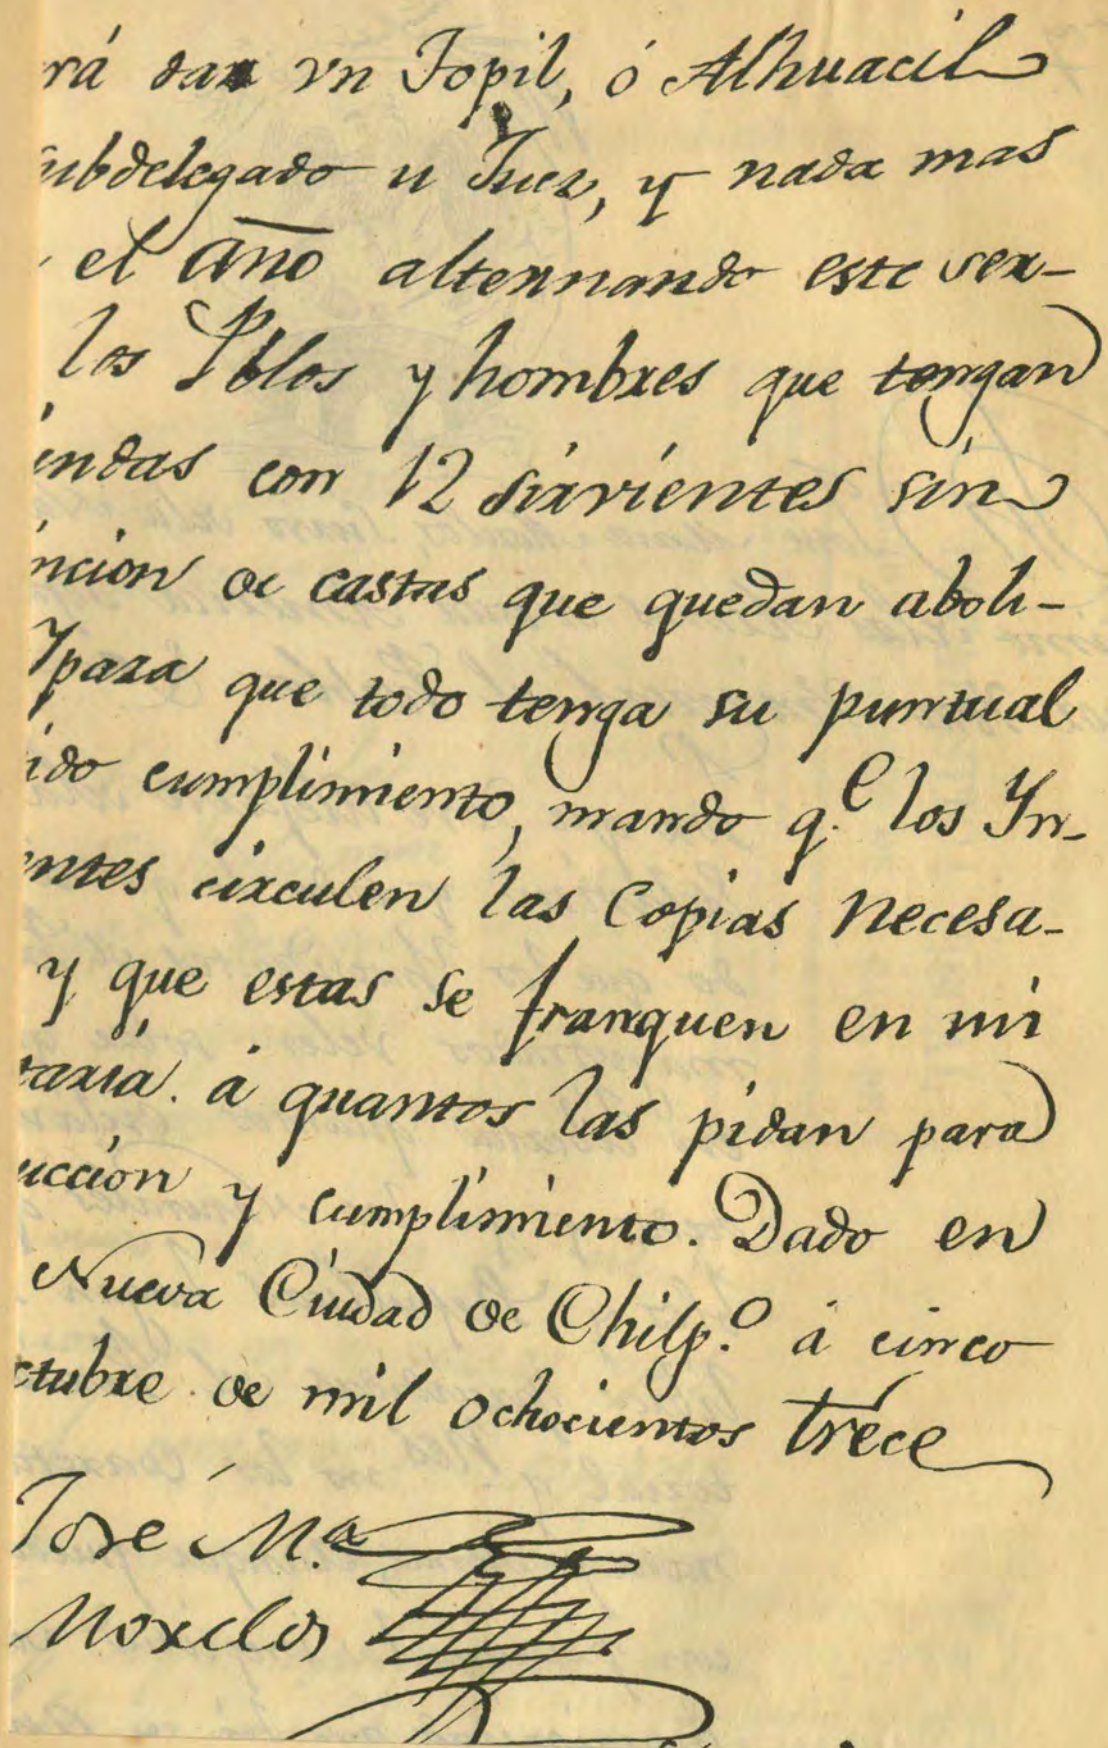 rá dar vn Topil, ó Alhuacil
subdelegado u Juez, y nada mas
el año alternando este ser-
los Pblos y hombres que tengan
endas con 12 sirvientes sin
ncion de castas que quedan aboli-
Ypara que todo tenga su puntual
ido cumplimiento, mando q.e los Yn-
ntes circulen las Copias necesa-
y que estas se franquen en mi
taria. á quantos las pidan para
uccion y cumplimiento. Dado en
Nueva Ciudad de Chilp.o á cinco
ctubre de mil ochocientos trece
José M.a
Morelos